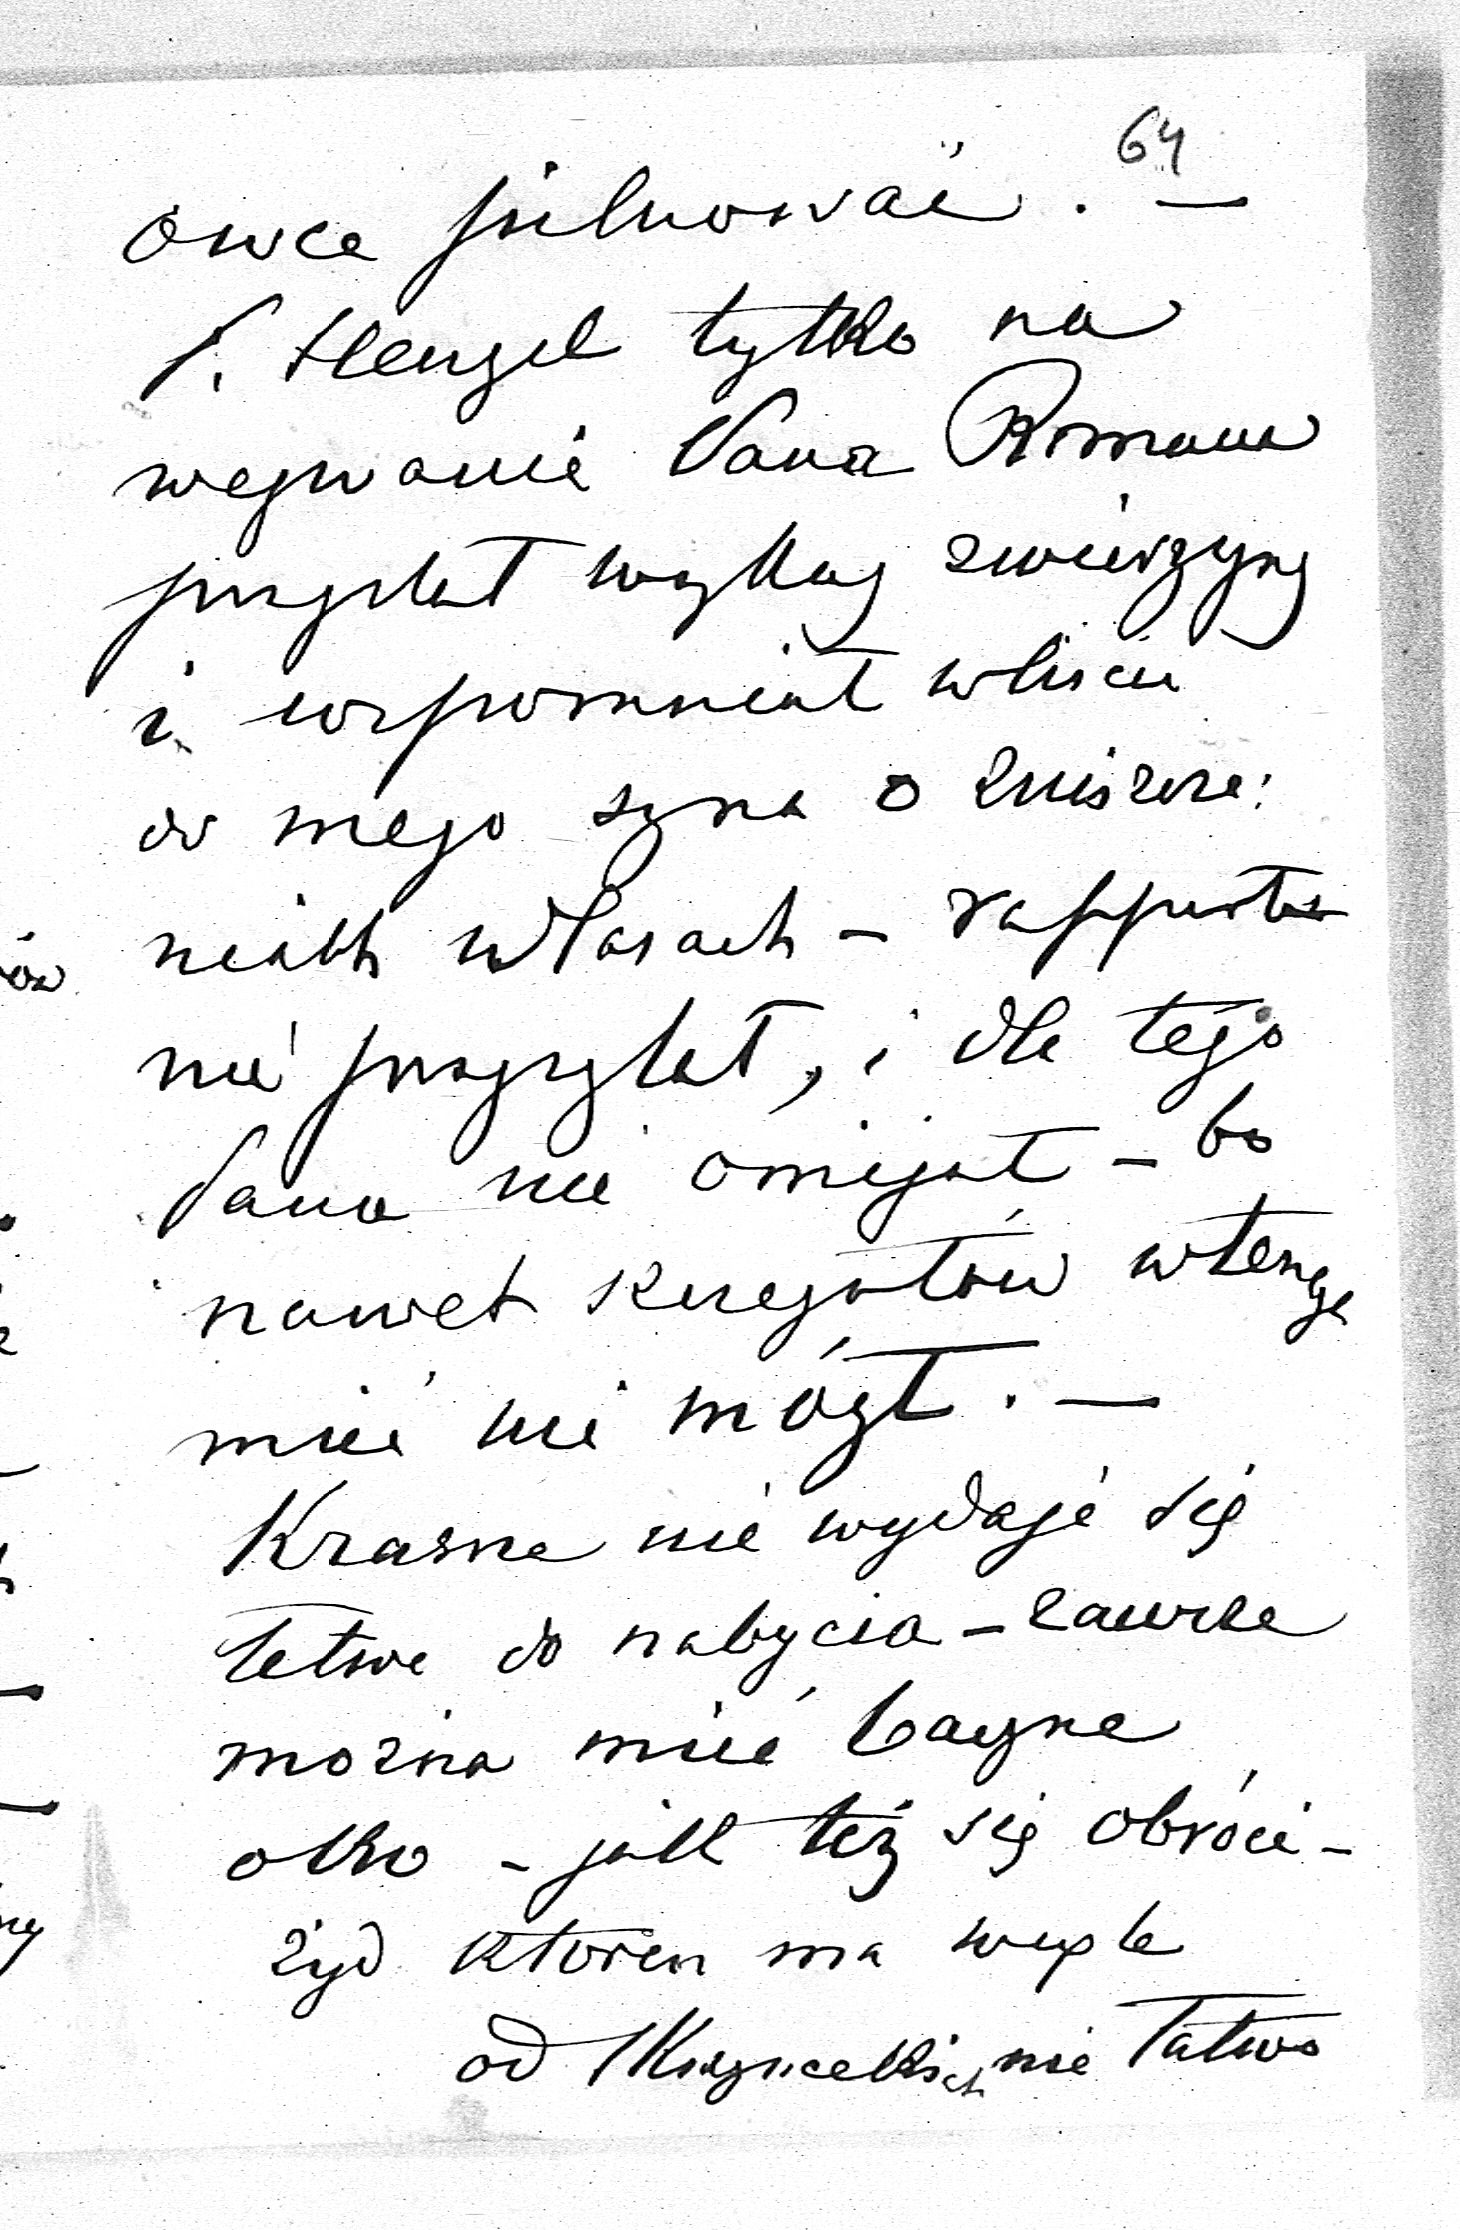 64
owce pilnować. —
P. Hengel tylko na
wezwanie Pana Romana
przysłał wykaz zwierzyny
i wspomniał w liście
do mego syna o zniszcze:
niach w lasach – rapportu
nie przysyłał, i dla tego
Pana nie omijał – bo
nawet rezultatów w tenże
mieć nie mógł. —
Krasne nie wydaje się
łatwe do nabycia – zawsze
można mieć baczne
oko – jak też się obróci –
żyd któren ma
od nie łatwo